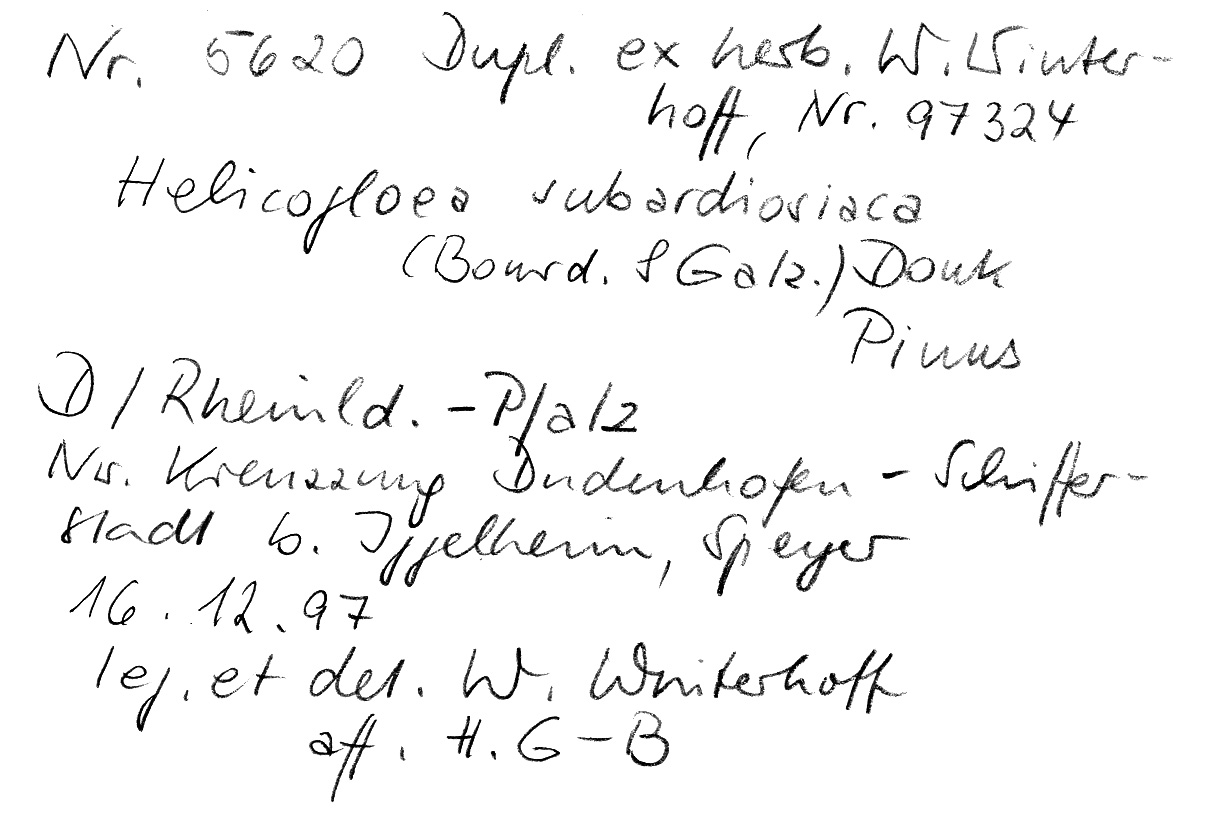 Nr. 5620 Dupl. ex herb. W. Winter-
hoff, Nr. 97324
Helicogloea subardiosiaca
(Bourd. & Galz.) Donk
Pinus
D / Rheinld. - Pfalz
Nw. Kreuzung Dudenhofen - Schiffer-
stadt b. Iggelheim, Speyer
16.12.97
leg. et det. W. Winterhoff
aff. H. G-B